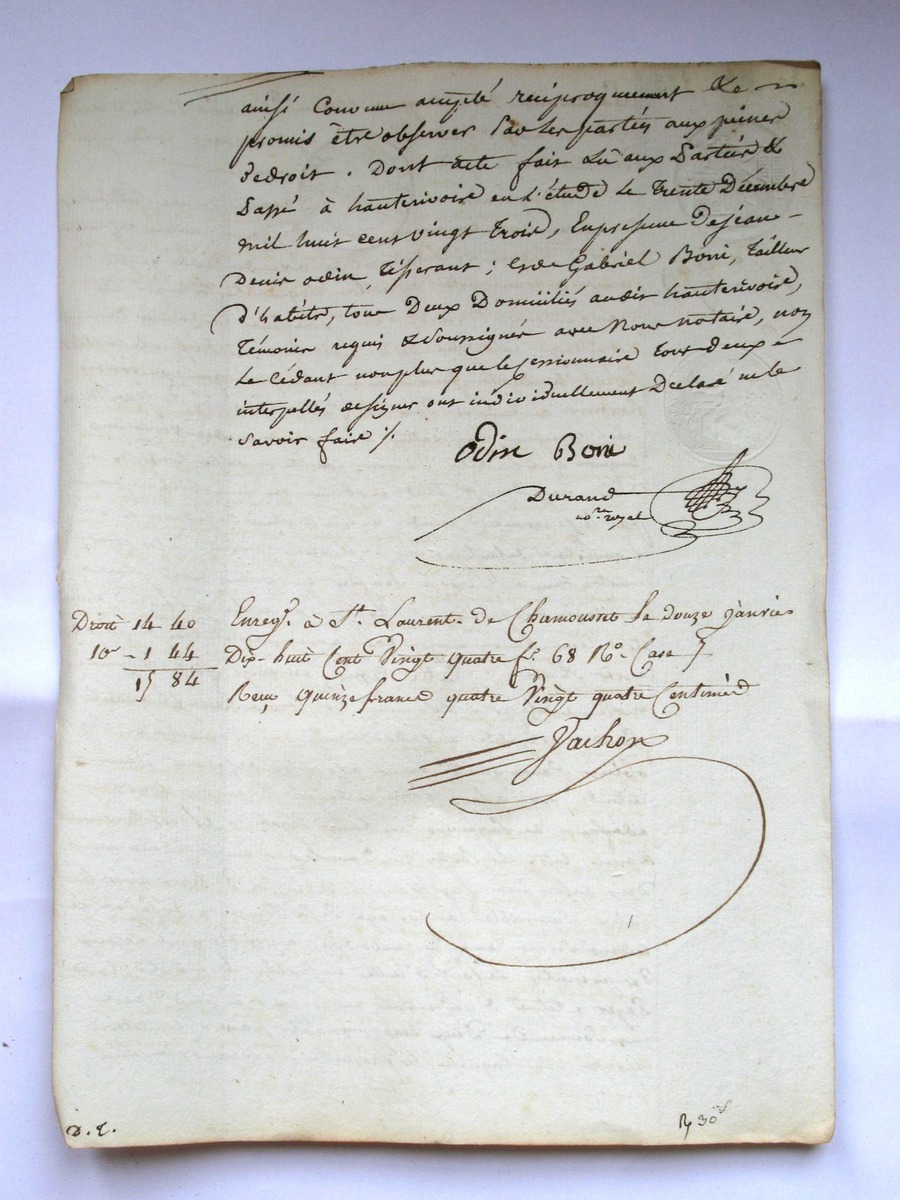 ainsi Convenu accepté réciproquement &e
promis être observer par les parties aux peines
de droit. Dont acte fait Lû aux Parties &
Passé à hauterivoire en L'étude Le Trente Décembre
mil huit cent vingt trois, En presence De Jean-
Denis odin, Tisserant; & de Gabriel Boni, Tailleur
D'habits, tous Deux Domiciliés audit hauterivoire,
Témoins requis & Soussignés avec Nous notaire, non
Le Cédant nonplus que le Cessionnaire tous deux
interpellés de signer ont individuellement Déclaré ne le
Savoir faire ./.
Odin Boni
Durand
no.re royal
Droit 14 40
10e - 1 44
15 84
Enregé. à St. Laurent-de Chamousset le douze janvier
Dix-huit Cent Vingt quatre fo. 68 Ro. Case 7
Reçu quinze francs quatre Vingt quatre Centimes
Vachon
D.E.
30